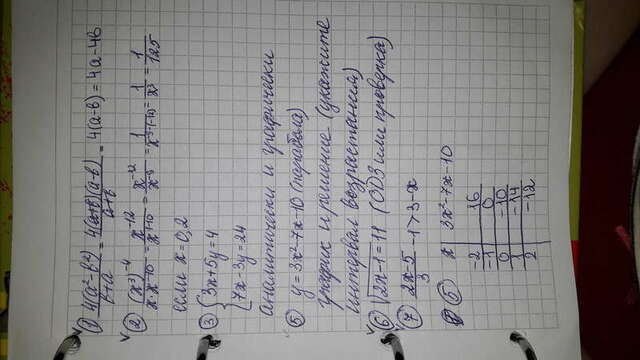 1 4(a²-в²)/в+a = 4(a+в)(a-в)/a+в = 4(a-в) = 4a-4в
2 (x³)⁻⁴/x·x⁻¹⁰ = x⁻¹²/x¹⁻¹⁰ = x⁻¹²/x⁻⁹ = 1/x⁻⁹⁻⁽⁻¹²⁾ = 1/x³ = 1/125
если x=0,2
3 {3x+5y=4
7x-3y=24
аналитически и графически
5 y=3x²-7x-10 (парабола)
график и решение (укажите
интервал возрастания)
6 √2x-1=11 (ОДЗ или проверка)
7 2x-5/3 -1>3-x
5 x 3x²-7x-10
-2 16
-1 0
0 -10
1 -14
2 -12